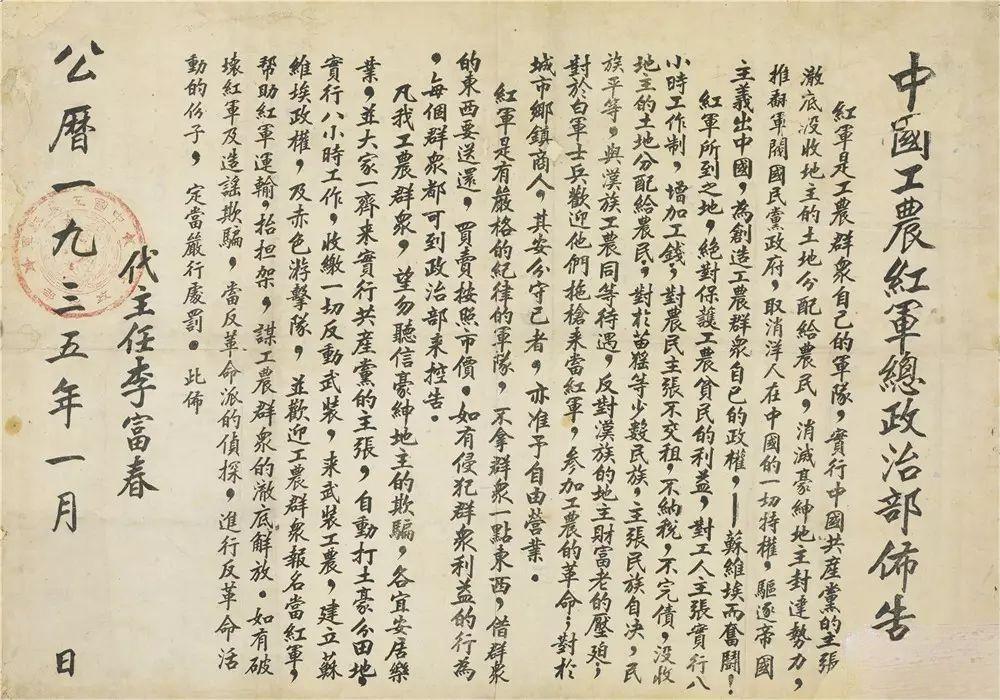 中國工農紅軍總政治部佈告
紅軍是工農群衆自己的軍隊,實行中國共産黨的主張
澈底没收地主的土地分配給農民,消滅豪紳地主封建勢力,
推翻軍閥國民黨政府,取消洋人在中國的一切特權,驅逐帝國
主義出中國,為創造工農群衆自己的政權,——蘇維埃而奮鬪!
紅軍所到之地,絕對保護工農貧民的利益,對工人主張實行八
小時工作制,增加工錢;對農民主張不交租,不納稅,不完債,沒收
地主的土地分配給農民,對於苗猺等少數民族,主張民族自决,民
族平等,與漢族工農同等待遇,反對漢族的地主財富老的壓廹;
對於白軍士兵歡迎他們拖槍來當紅軍,參加工農的革命;對於
城市鄉鎮商人,其安分守己者,亦准予自由營業。
紅軍是有嚴格的紀律的軍隊,不拿群衆一點東西,借群衆
的東西要送還,買賣按照市價。如有侵犯群衆利益的行為
,每個群衆都可到政治部來控告。
凡我工農群衆,望勿聽信豪紳地主的欺騙,各宜安居樂
業,並大家一齊來實行共産黨的主張,自動打土豪分田地,
實行八小時工作,收繳一切反動武裝,來武裝工農,建立蘇
維埃政權,及赤色游擊隊,並歡迎工農群衆報名當紅軍,
帮助紅軍運輸,抬担架,謀工農群衆的澈底解放。如有破
壞紅軍及造謡欺騙,當反革命派的偵探,進行反革命活
動的份子,定當嚴行處罰。此佈
代主任李富春
公曆一九三五年一月 日